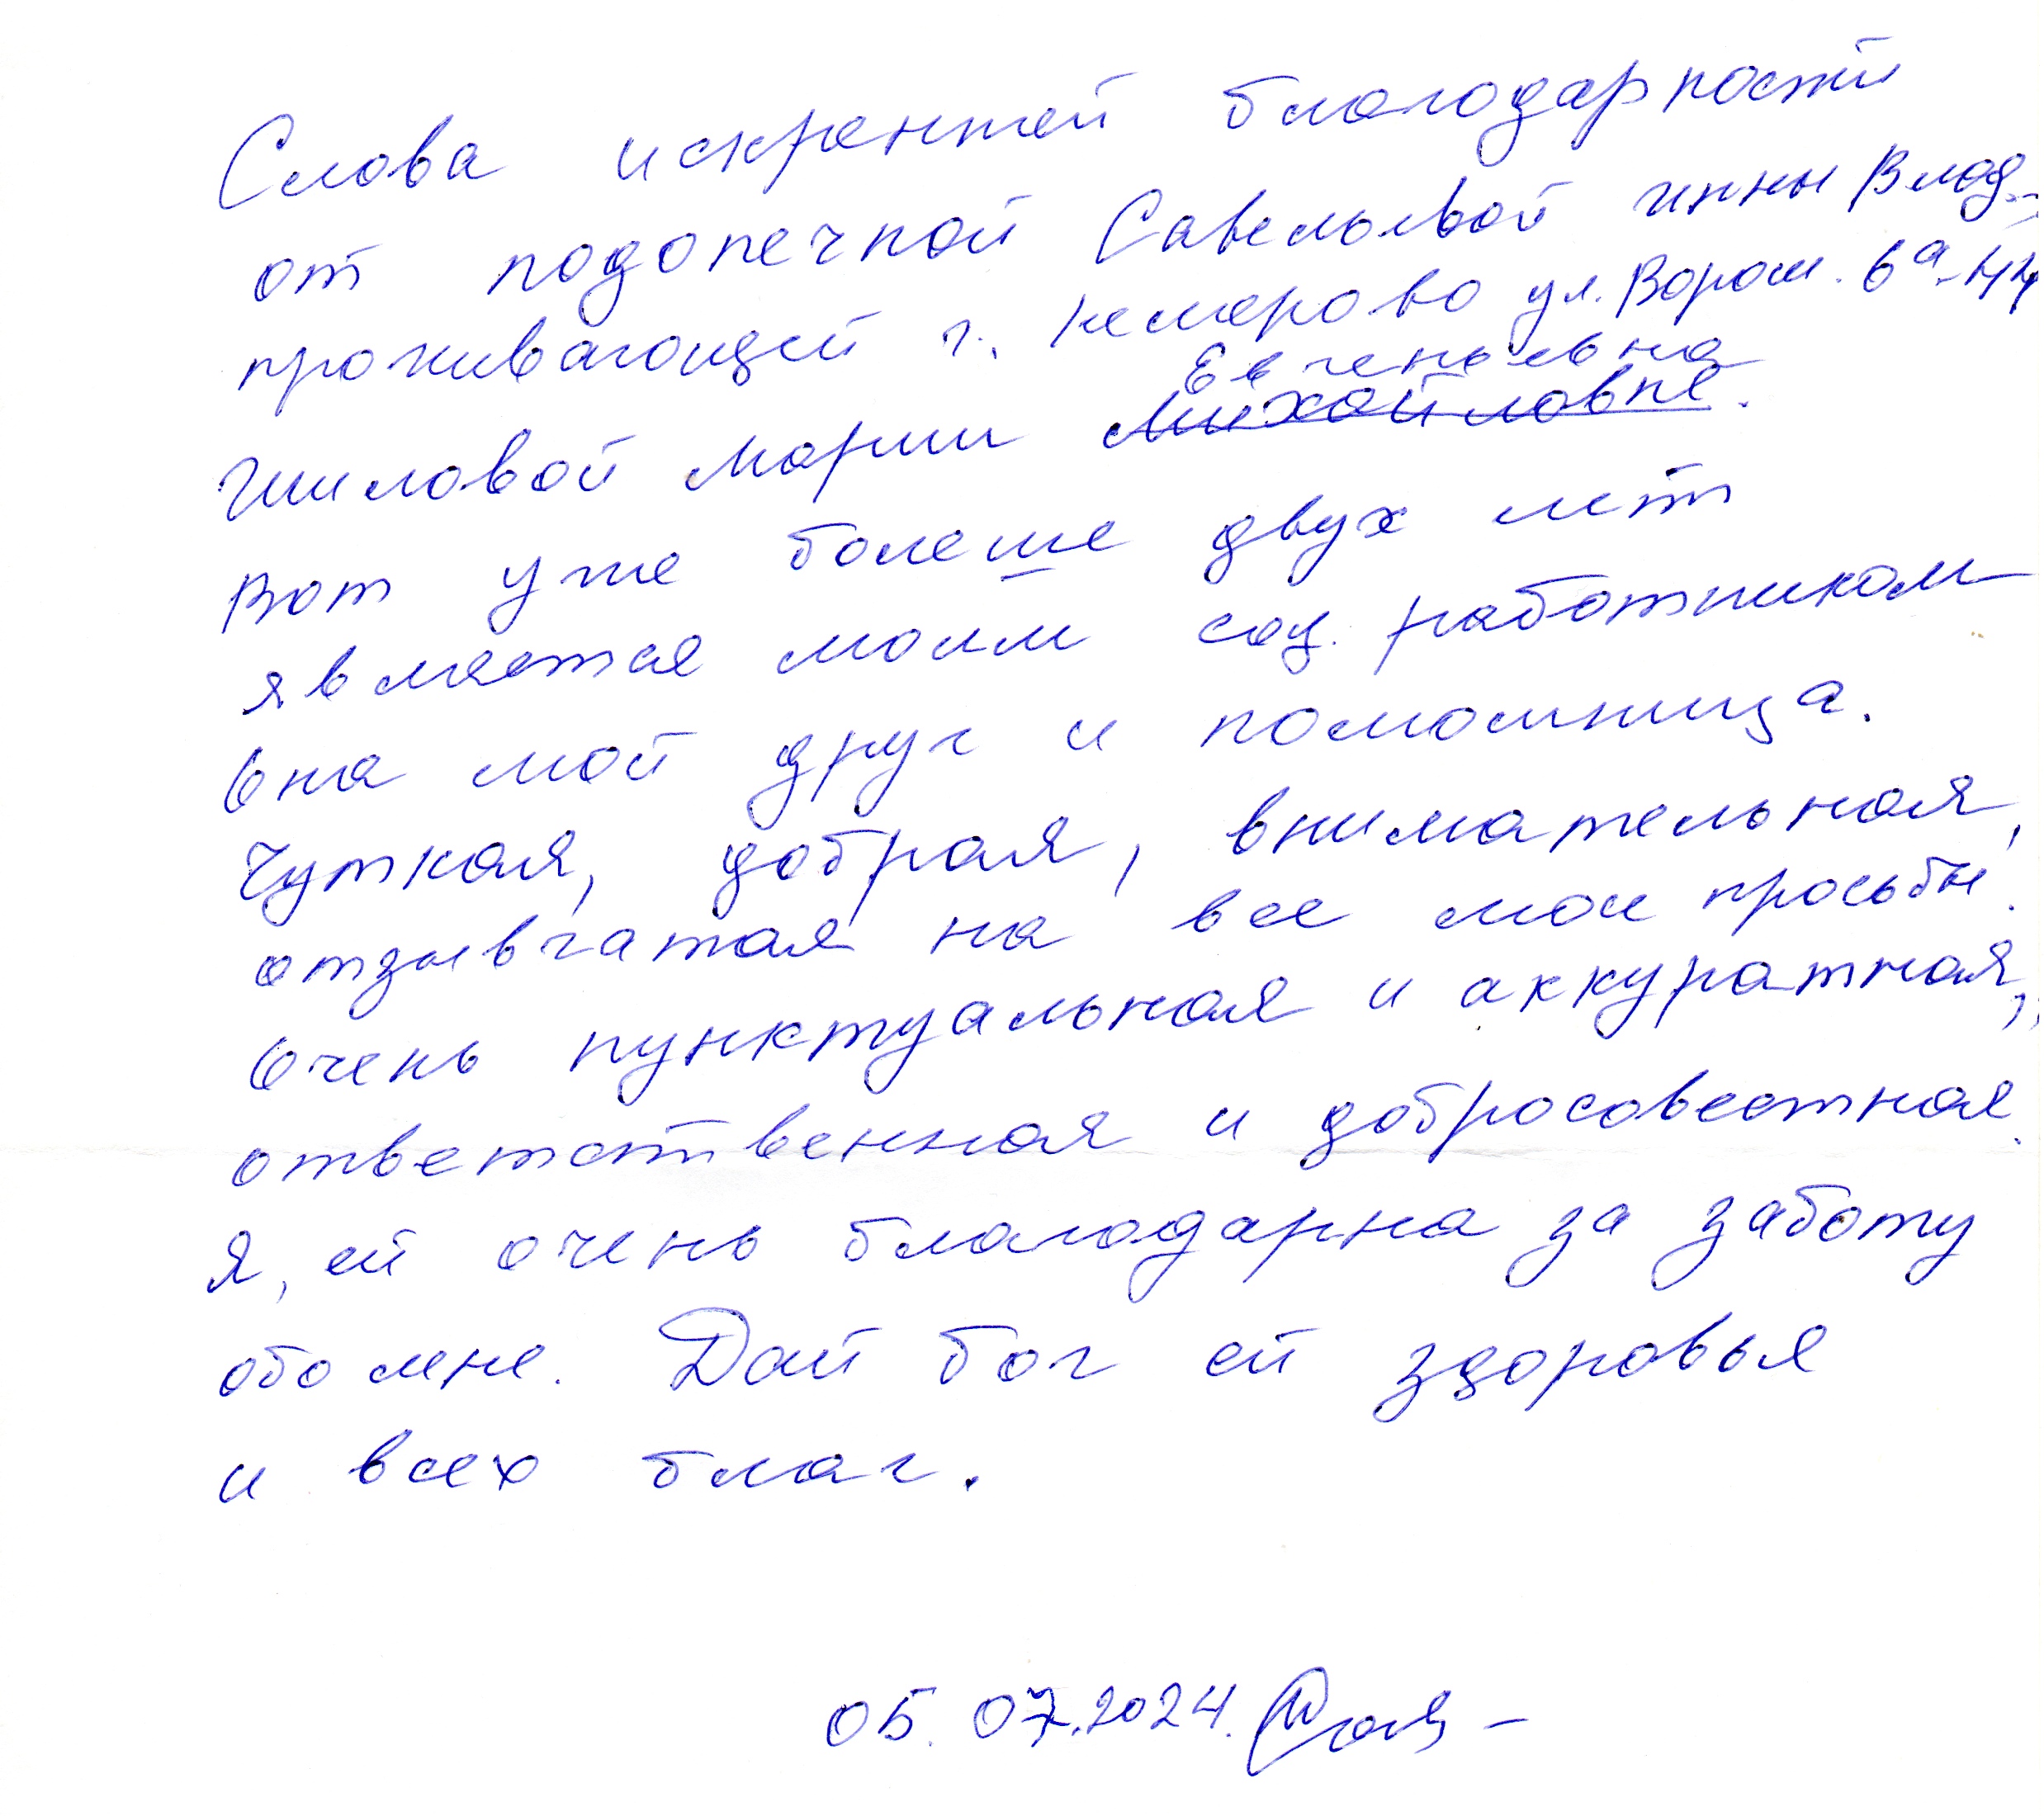 Слова искренней благодарности
от подопечной Савельевой Инны Влад.-
проживающей г. Кемерово ул. Ворош. 6а-44
Евгеньевна
Шиловой Марии Михайловне.
Вот уже более двух лет
является моим соц. работником
Она мой друг и помощница.
Чуткая, добрая, внимательная,
отзывчатая на все мои просьбы.
Очень пунктуальная и аккуратная,
ответственная и добросовестная.
Я, ей очень благодарна за заботу
обо мне. Дай бог ей здоровья
и всех благ.
05.07.2024.